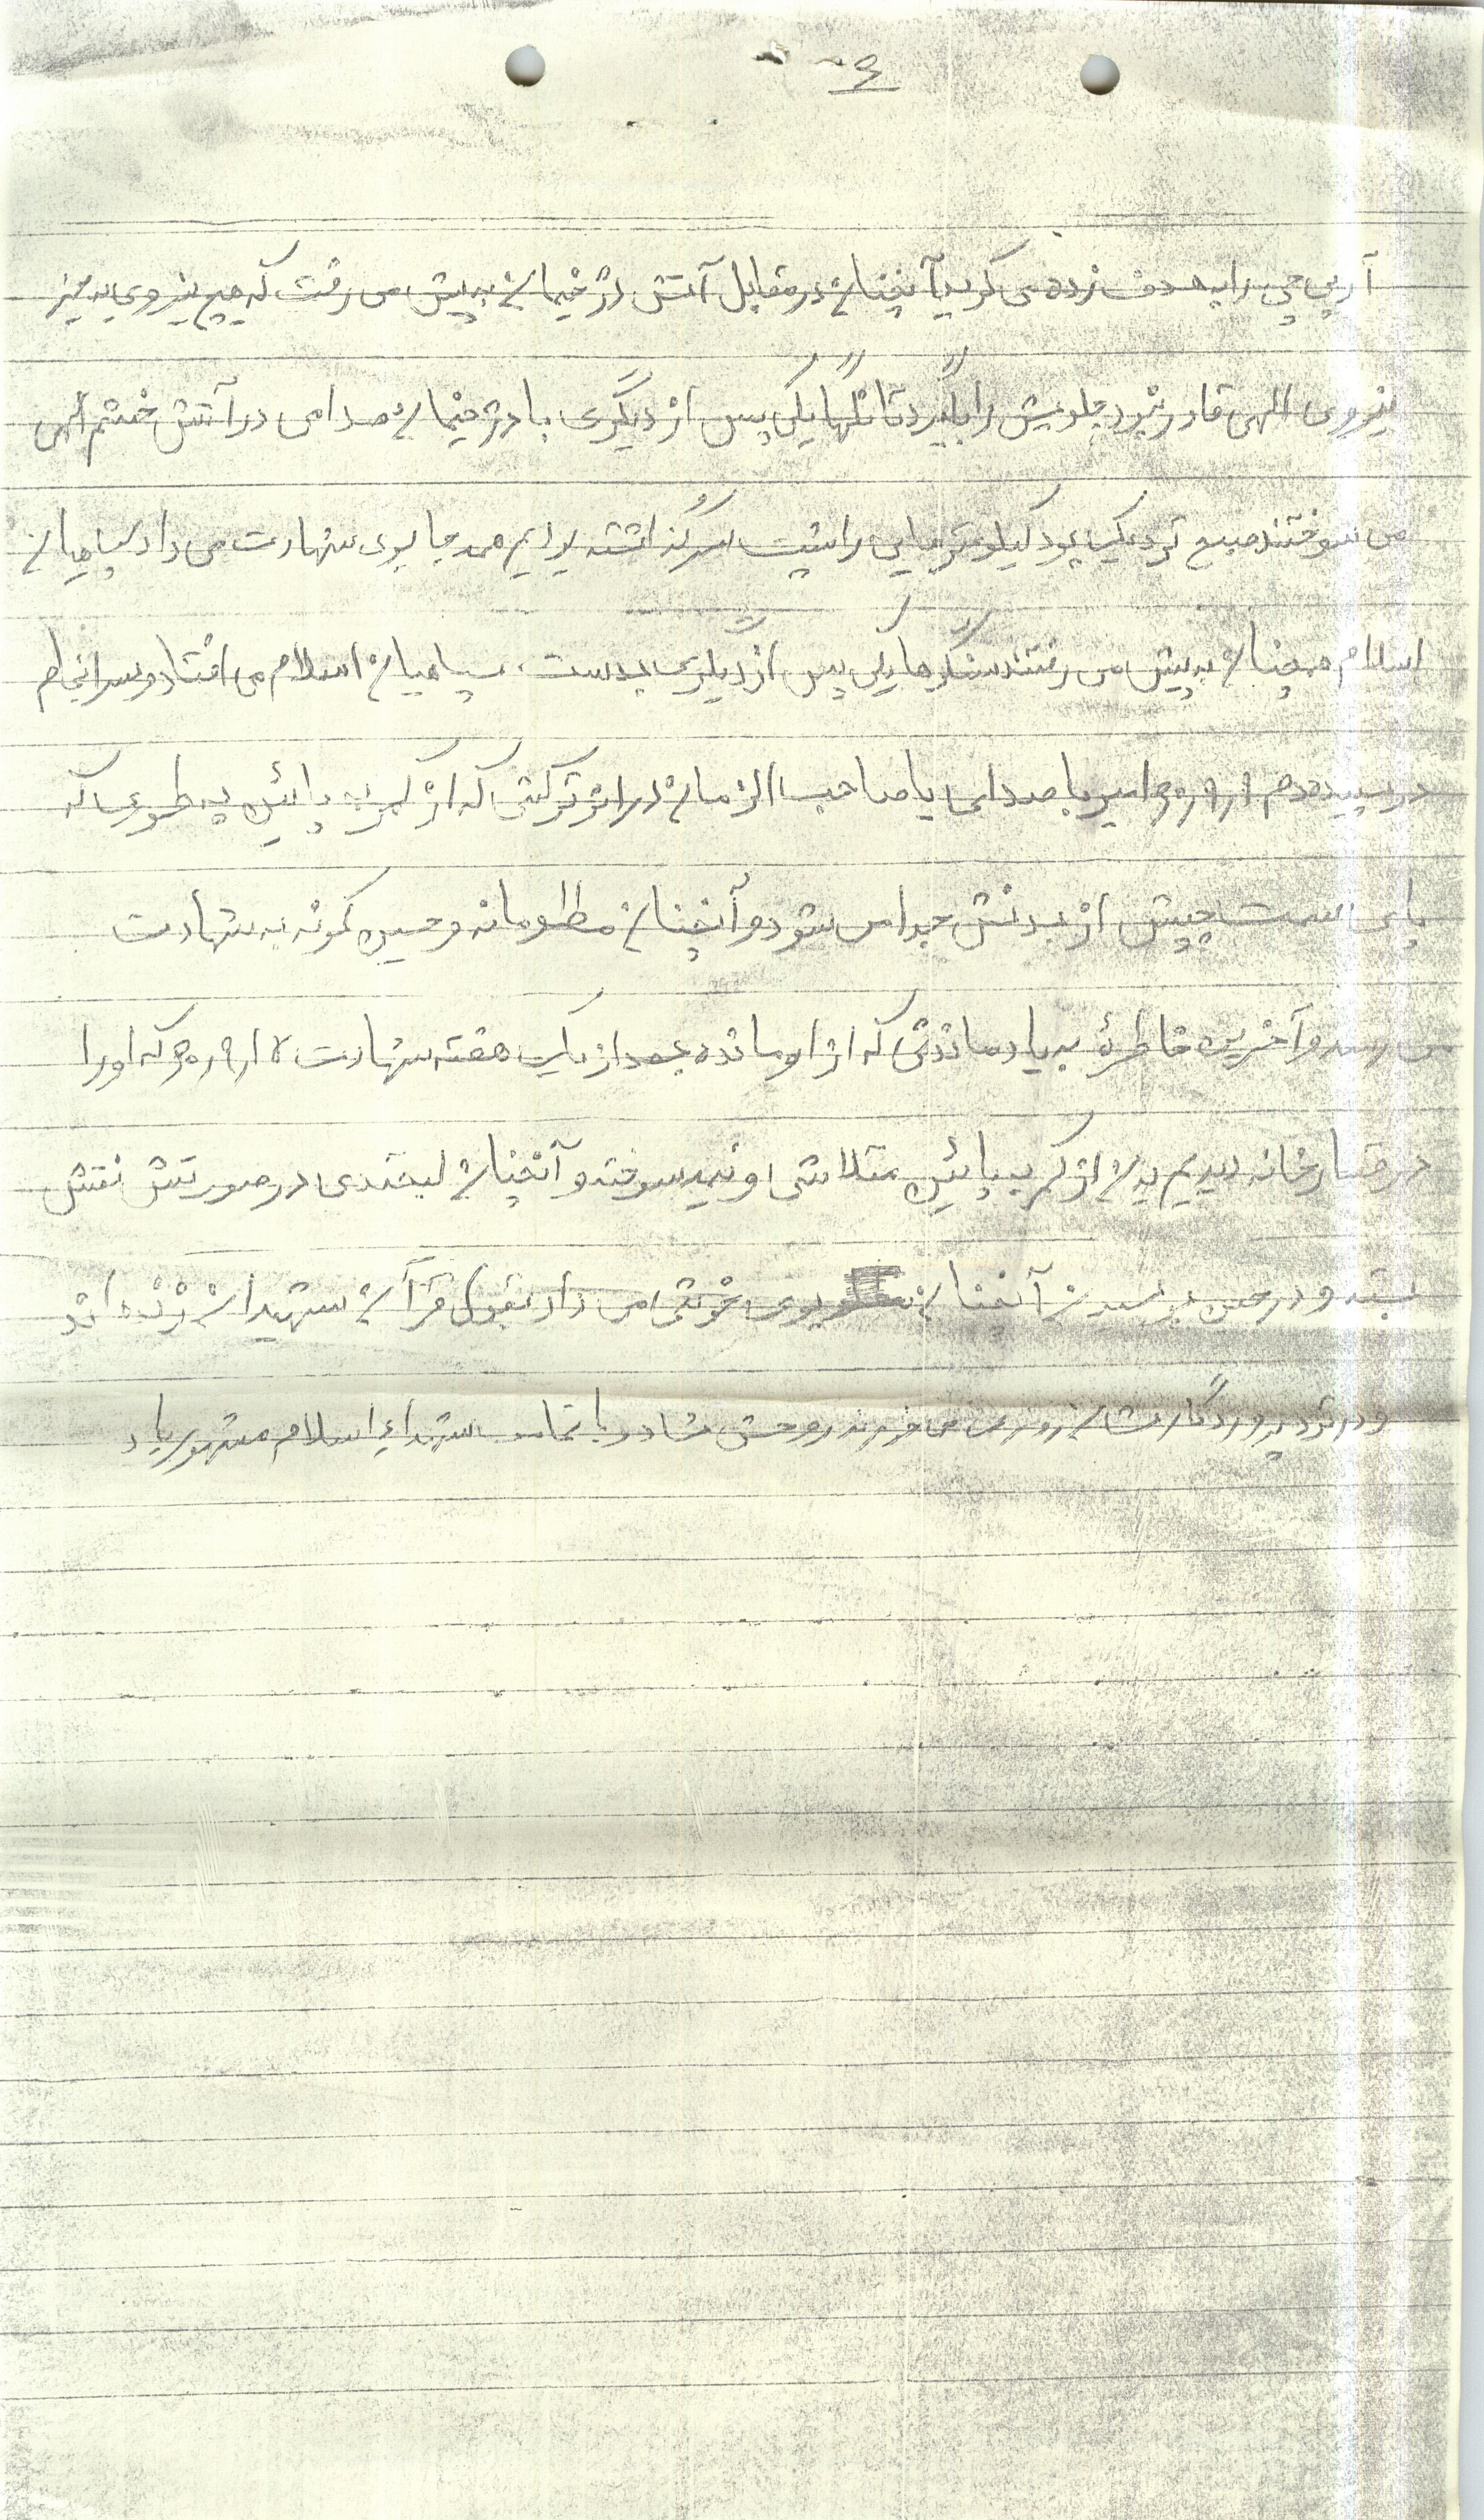 ۶
آرپی جی را به هدف زده می کرد آنچنان در مقابل آتش دژخیمان به پیش می رفت که هیچ نیروی به جز
نیروی الهی قادر نبود جلویش را بگیرد تانکها یکی پس از دیگری با دژخیمان صدامی در آتش خشم الهی
می سوختند صبح نزدیک بود کیلومترهایی را پشت سر گذاشته بودیم همه جا بوی شهادت می داد سپاهیان
اسلام همچنان به پیش می رفتند سنگرها یکی پس از دیگری بدست سپاهیان اسلام می افتاد و سرانجام
در سپیده دم امیر با صدای یا صاحب الزمان در اثر ترکشی که از کمر به پائین به طوری که
پای سمت چپش از بدنش جدا می شود و آنچنان مظلومانه و حسین گونه به شهادت
می رسد و آخرین خاطرهٔ به یاد ماندنی که از او مانده بعد از یک هفته شهادت که او را
در خانه دیدیم بدن از کمر به پائین متلاشی او نیم سوخته و آنچنان لبخندی در صورتش نقش
بسته و در حین بوسیدن آنچنان بوی خوشی می داد بقول قرآن شهیدان زنده اند
و در نزد پروردگارشان روزی می خورند روحش شاد و با تمامی شهدای اسلام مشهور باد